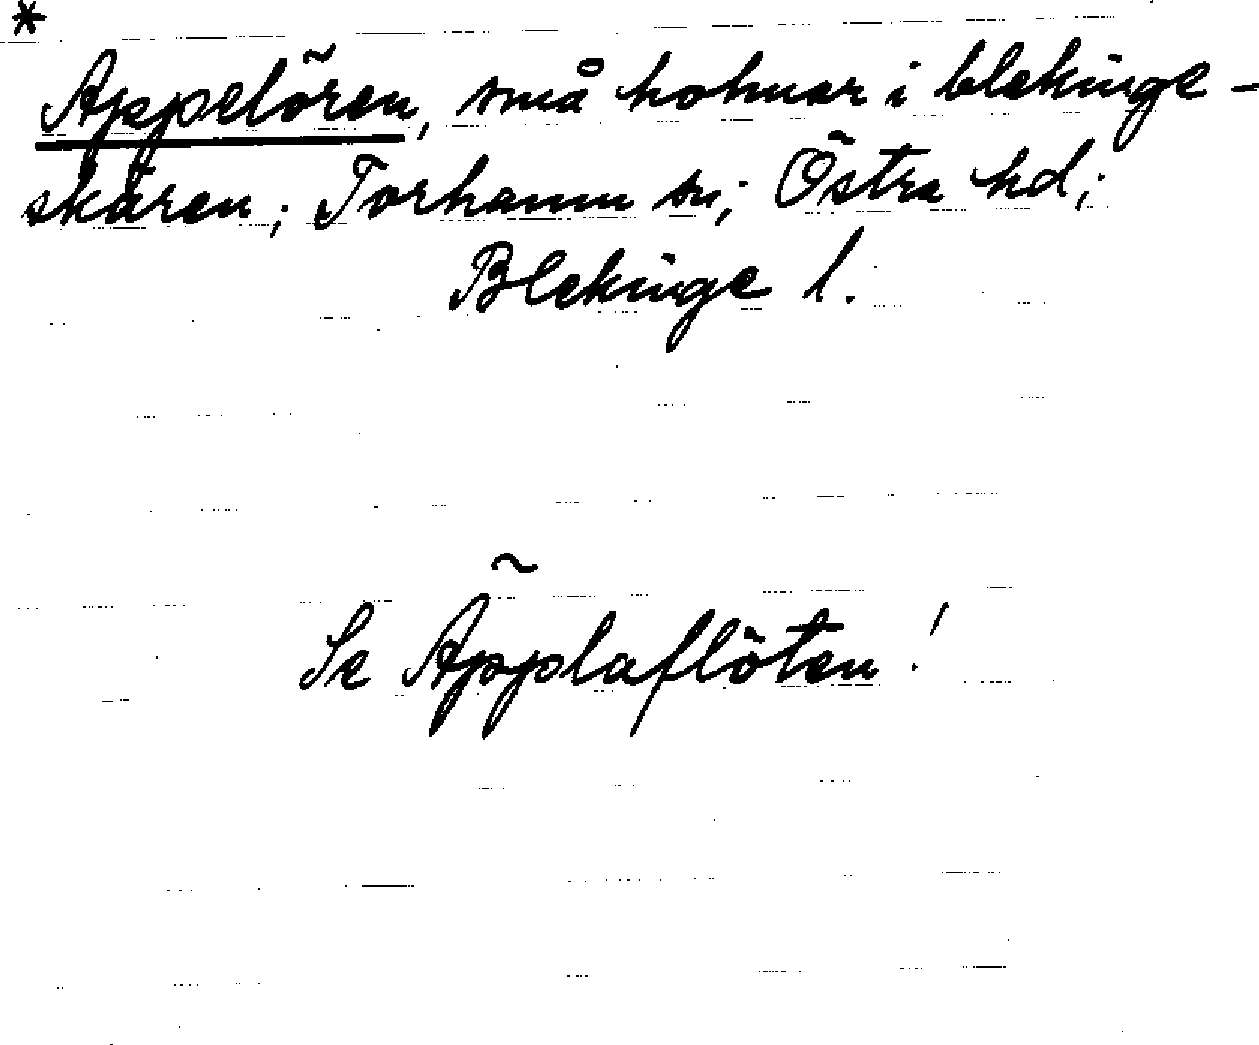 *
Appelören, små holmar i blekinge-
skären; Torhamn sn; Östra hd;
Blekinge l.
Se Äpplaflöten!